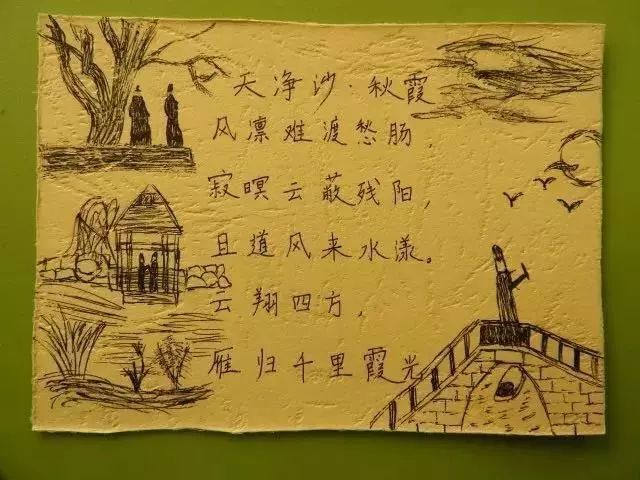 天净沙·秋霞
风凛难渡愁肠，
寂暝云蔽残阳，
且道风来水漾。
云翔四方，
雁归千里霞光